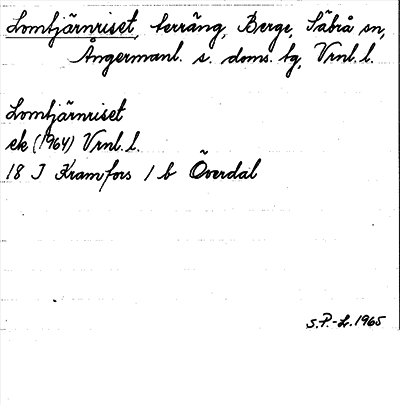 Lomtjärnriset, terräng, Berge, Säbrå sn,
Ångermanl. s. doms. tg, Vrnl. l.
Lomtjärnriset
ek (1964) Vrnl. l.
18 J Kramfors 1 b Överdal
S.P.-L. 1965